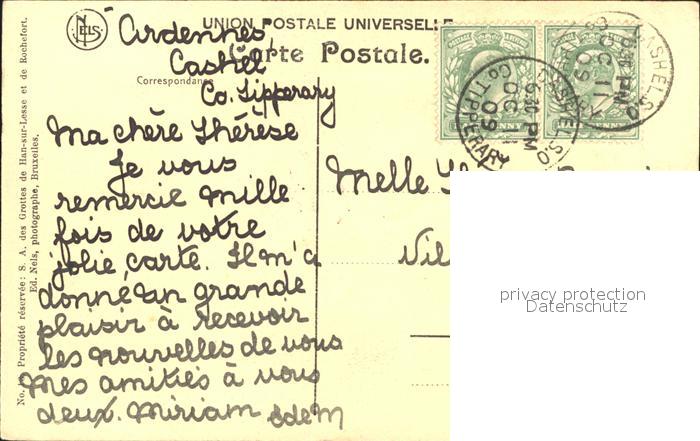 NELS
UNION POSTALE UNIVERSELLE
Ardennes
Carte Postale.
Cashel
Correspondance
Co. Tipperary
Ma chère Thérèse
Je vous
remercie mille
fois de votre
jolie carte. Il m'a
donné un grande
plaisir à recevoir
les nouvelles de vous
Mes amitiés à vous
deux. Miriam
Melle
Vil
CASHEL S.O
Co. TIPPERARY
6 30 PM
OC 11
09
CASHEL S.O
TIPPERARY
PM
OC 11
09
PENNY
privacy protection
Datenschutz
Propriété réservée: S. A. des Grottes de Han-sur-Lesse et de Rochefort.
Ed. Nels, photographe, Bruxelles.